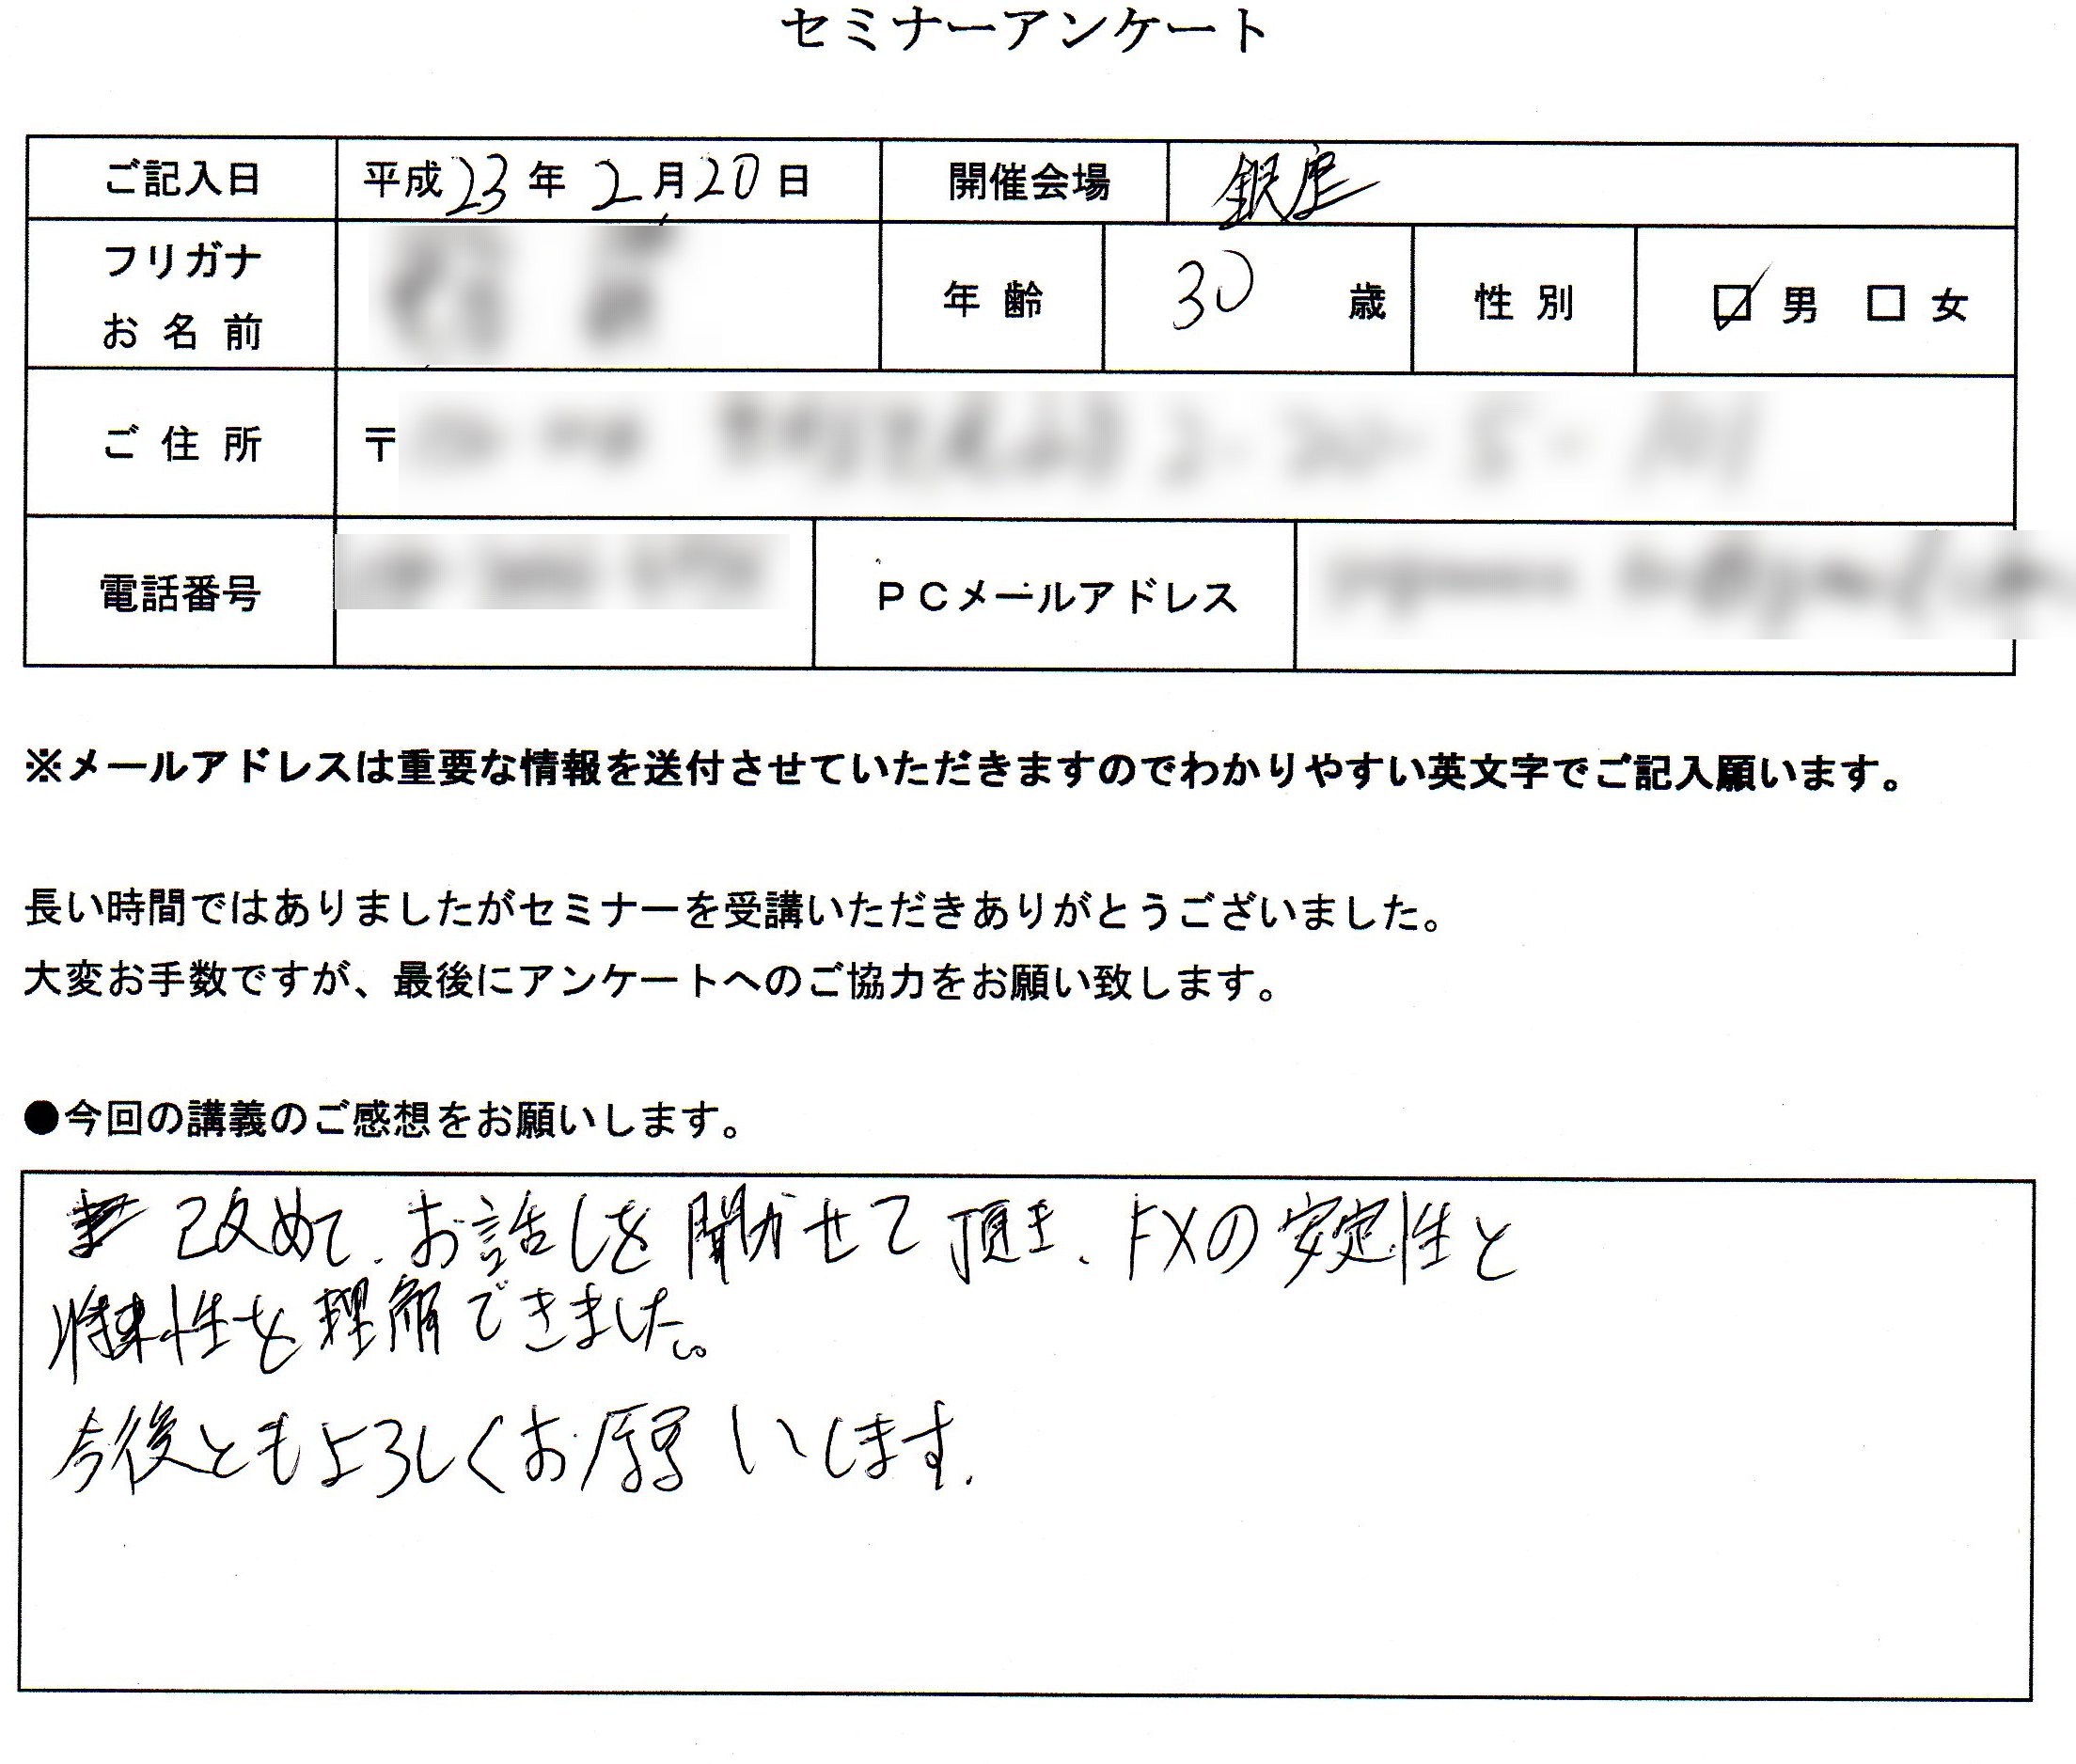 セミナーアンケート
ご記入日 平成23年 2月20日 開催会場 銀座
フリガナ
お名前 年齢 30 歳 性別 ☑男 □女
ご住所 〒
電話番号 PCメールアドレス
※メールアドレスは重要な情報を送付させていただきますのでわかりやすい英文字でご記入願います。
長い時間ではありましたがセミナーを受講いただきありがとうございました。
大変お手数ですが、最後にアンケートへのご協力をお願い致します。
●今回の講義のご感想をお願いします。
改めて、お話しを聞かせて頂き、FXの安定性と
特性を理解できました。
今後ともよろしくお願いします.